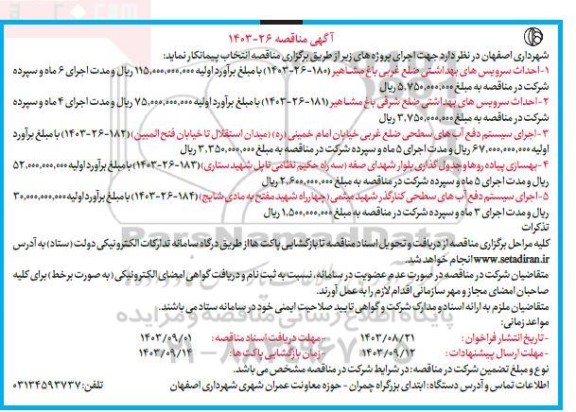 آگهی مناقصه ۲۶-۱۴۰۳
شهرداری اصفهان در نظر دارد جهت اجرای پروژه های زیر از طریق برگزاری مناقصه انتخاب پیمانکار نماید:
۱-احداث سرویس های بهداشتی ضلع غربی باغ مشاهیر (۱۸۰-۲۶-۱۴۰۳) با مبلغ برآورد اولیه ۱۱۵,۰۰۰,۰۰۰,۰۰۰ ریال و مدت اجرای ۶ ماه و سپرده
شرکت در مناقصه به مبلغ ۵,۷۵۰,۰۰۰,۰۰۰ ریال
۲-احداث سرویس های بهداشتی ضلع شرقی باغ مشاهیر (۱۸۱-۲۶-۱۴۰۳) با مبلغ برآورد اولیه ۷۵,۰۰۰,۰۰۰,۰۰۰ ریال و مدت اجرای ۴ ماه و سپرده
شرکت در مناقصه به مبلغ ۳,۷۵۰,۰۰۰,۰۰۰ ریال
۳-اجرای سیستم دفع آب های سطحی ضلع غربی خیابان امام خمینی (ره) (میدان استقلال تا خیابان فتح المبین) (۱۸۲-۲۶-۱۴۰۳) با مبلغ برآورد
اولیه ۶۷,۰۰۰,۰۰۰,۰۰۰ ریال و مدت اجرای ۵ ماه و سپرده شرکت در مناقصه به مبلغ ۳,۳۵۰,۰۰۰,۰۰۰ ریال
۴-بهسازی پیاده روها و جدول گذاری بلوار شهدای صفه (سه راه حکیم نظامی تا پل شهید ستاری) (۱۸۳-۲۶-۱۴۰۳) با مبلغ برآورد اولیه ۵۲,۰۰۰,۰۰۰,۰۰۰
ریال و مدت اجرای ۵ ماه و سپرده شرکت در مناقصه به مبلغ ۲,۶۰۰,۰۰۰,۰۰۰ ریال
۵-اجرای سیستم دفع آب های سطحی کنارگذر شهید میثمی (چهارراه شهید مفتح به مادی شایج) (۱۸۴-۲۶-۱۴۰۳) با مبلغ برآورد اولیه ۳۰,۰۰۰,۰۰۰,۰۰۰
ریال و مدت اجرای ۳ ماه و سپرده شرکت در مناقصه به مبلغ ۱,۵۰۰,۰۰۰,۰۰۰ ریال
تذکرات
کلیه مراحل برگزاری مناقصه از دریافت و تحویل اسناد مناقصه تا بازگشایی پاکت ها از طریق درگاه سامانه تدارکات الکترونیکی دولت (ستاد) به آدرس
www.setadiran.ir انجام خواهد شد.
متقاضیان شرکت در مناقصه در صورت عدم عضویت در سامانه، نسبت به ثبت نام و دریافت گواهی امضای الکترونیکی (به صورت برخط) برای کلیه
صاحبان امضای مجاز و مهر سازمانی اقدام لازم را به عمل آورند.
متقاضیان ملزم به ارائه اسناد و مدارک شرکت و گواهی تایید صلاحیت ایمنی خود در سامانه ستاد می باشند.
مواعد زمانی:
-تاریخ انتشار فراخوان: ۱۴۰۳/۰۸/۲۱ -مهلت دریافت اسناد مناقصه: ۱۴۰۳/۰۹/۰۱
-مهلت ارسال پیشنهادات: ۱۴۰۳/۰۹/۱۲ -زمان بازگشایی پاکت ها: ۱۴۰۳/۰۹/۱۴
نوع و مبلغ تضمین شرکت در مناقصه: در شرایط شرکت در مناقصه مشخص می باشد.
اطلاعات تماس و آدرس دستگاه: ابتدای بزرگراه چمران - حوزه معاونت عمران شهری شهرداری اصفهان تلفن: ۰۳۱۳۴۵۹۳۷۳۷
ParsNamadData
پایگاه اطلاع رسانی مناقصه و مزایده